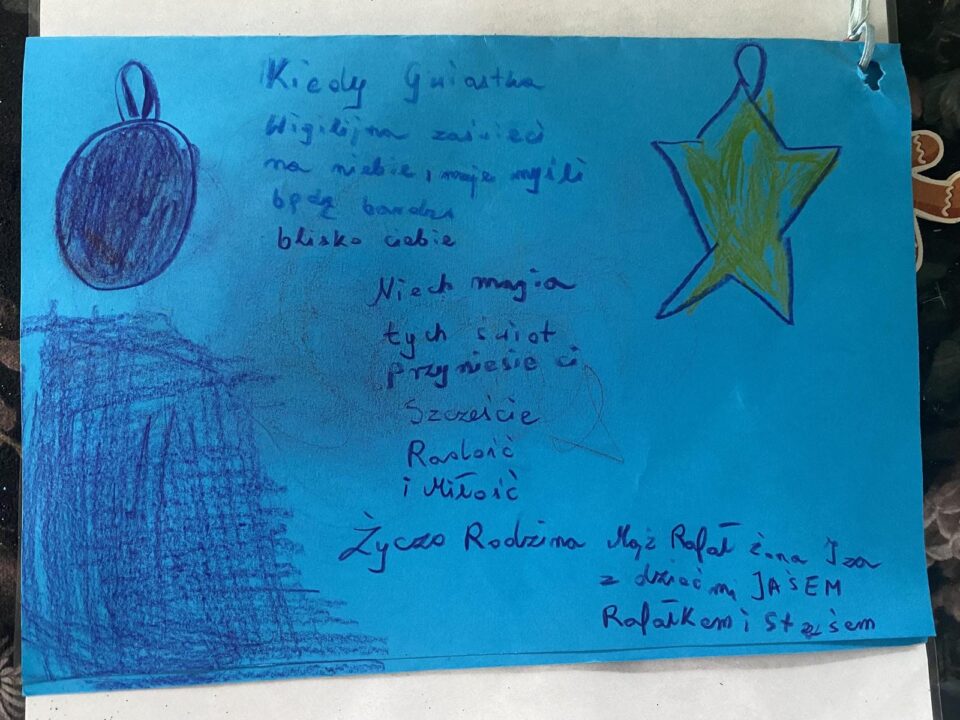 Kiedy Gwiastka
Wigilijna zaświeci
na niebie, moje myśli
będą bardzo
blisko ciebie
Niech magia
tych świąt
przyniesie ci
Szczęście
Radość
i Miłość
Życzo Rodzina Mąż Rafał żona Iza
z dziećmi JAŚEM
Rafałkem i Stasiem